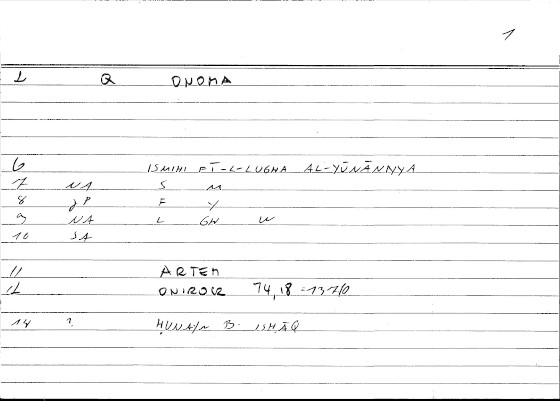 1
1 Q ONOMA
6 ISMIHI FĪ-L-LUGHA AL-YŪNĀNĪYA
7 NA S M
8 JP F Y
9 NA L GH W
10 SA
11 ARTEM
12 ONIROCR 74,18 - 13 7/0
14 ? ḤUNAYN B. ISḤĀQ